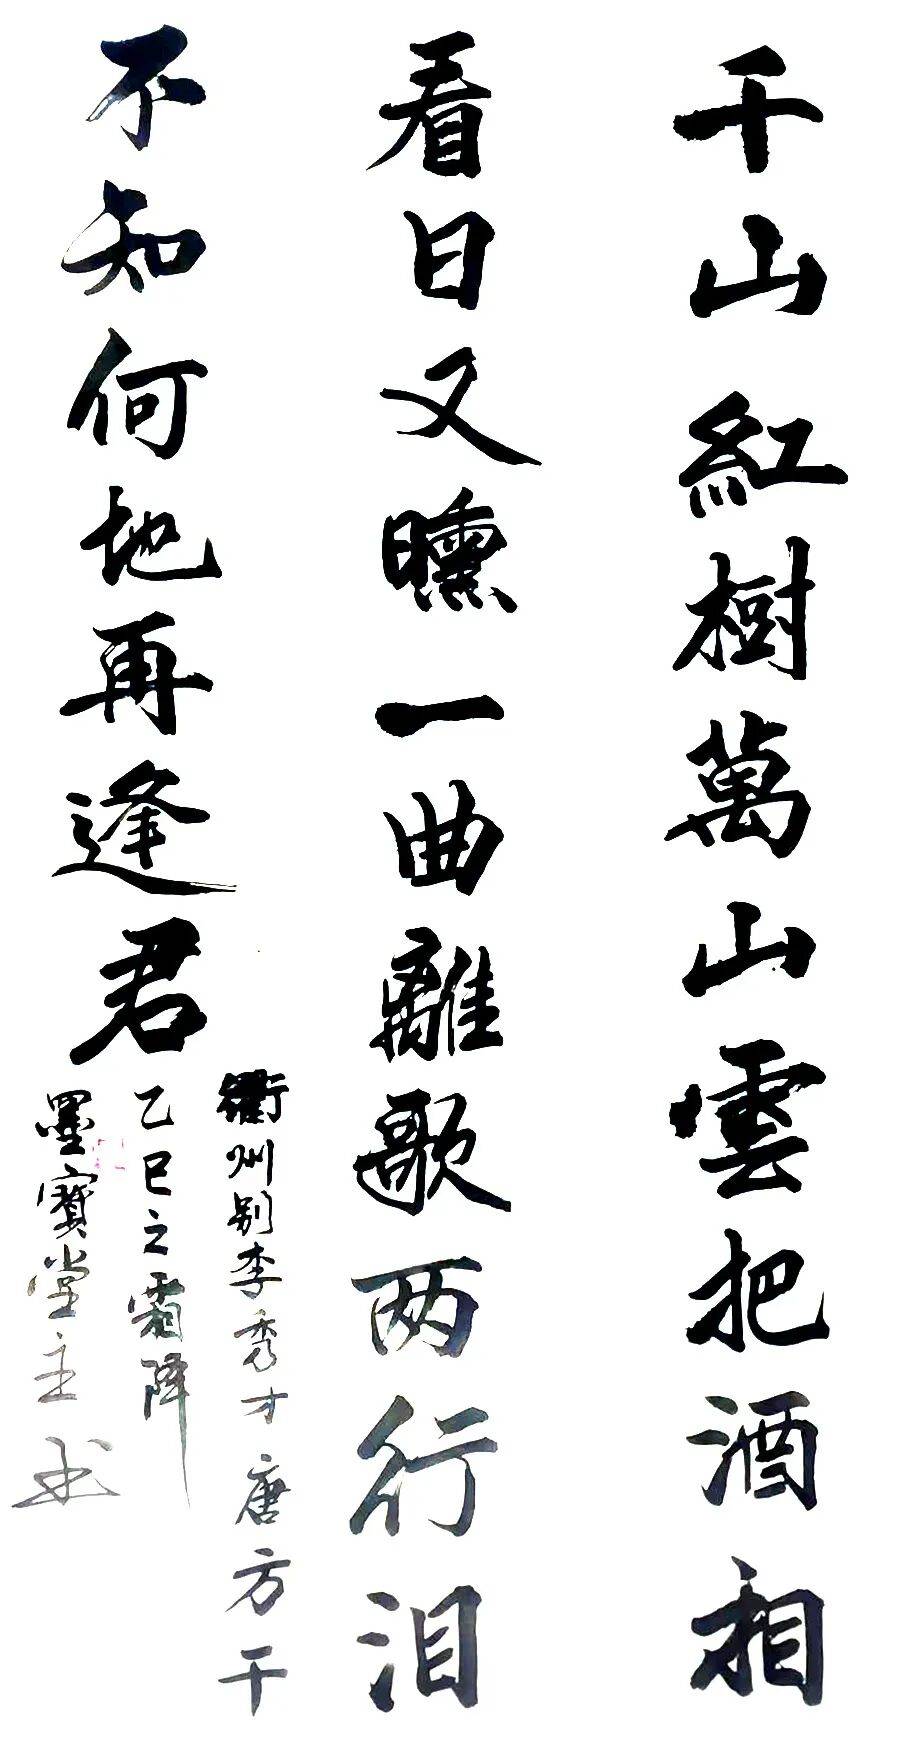 千山紅樹萬山雲把酒相
看日又曛一曲離歌两行泪
不知何地再逢君
衢州别李秀才唐方干
乙巳之霜降
墨寶堂主书